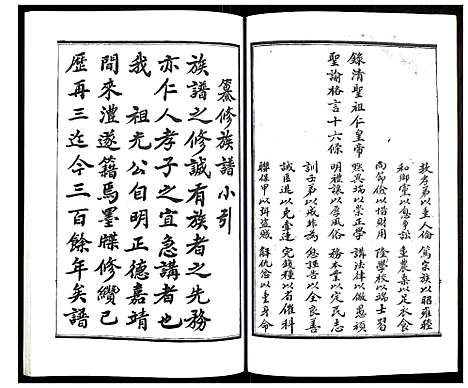 錄清聖祖仁皇帝
聖諭格言十六條
敦孝弟以重人倫 篤宗族以昭雍穆
和鄉黨以息爭訟 重農桑以足衣食
尚節儉以惜財用 隆學校以端士習
黜異端以崇正學 講法律以儆愚頑
明禮讓以厚風俗 務本業以定民志
訓子弟以戒非為 息誣告以全良善
誡匿逃以免株連 完錢糧以省催科
聯保甲以弭盜賊 解仇忿以重身命
纂修族譜小引
族譜之修誠有族者之先務
亦仁人孝子之宜急講者也
我 祖光公自明正德嘉靖
間來澧遂籍焉墨牒修纘已
歷再三迄今三百餘年矣譜